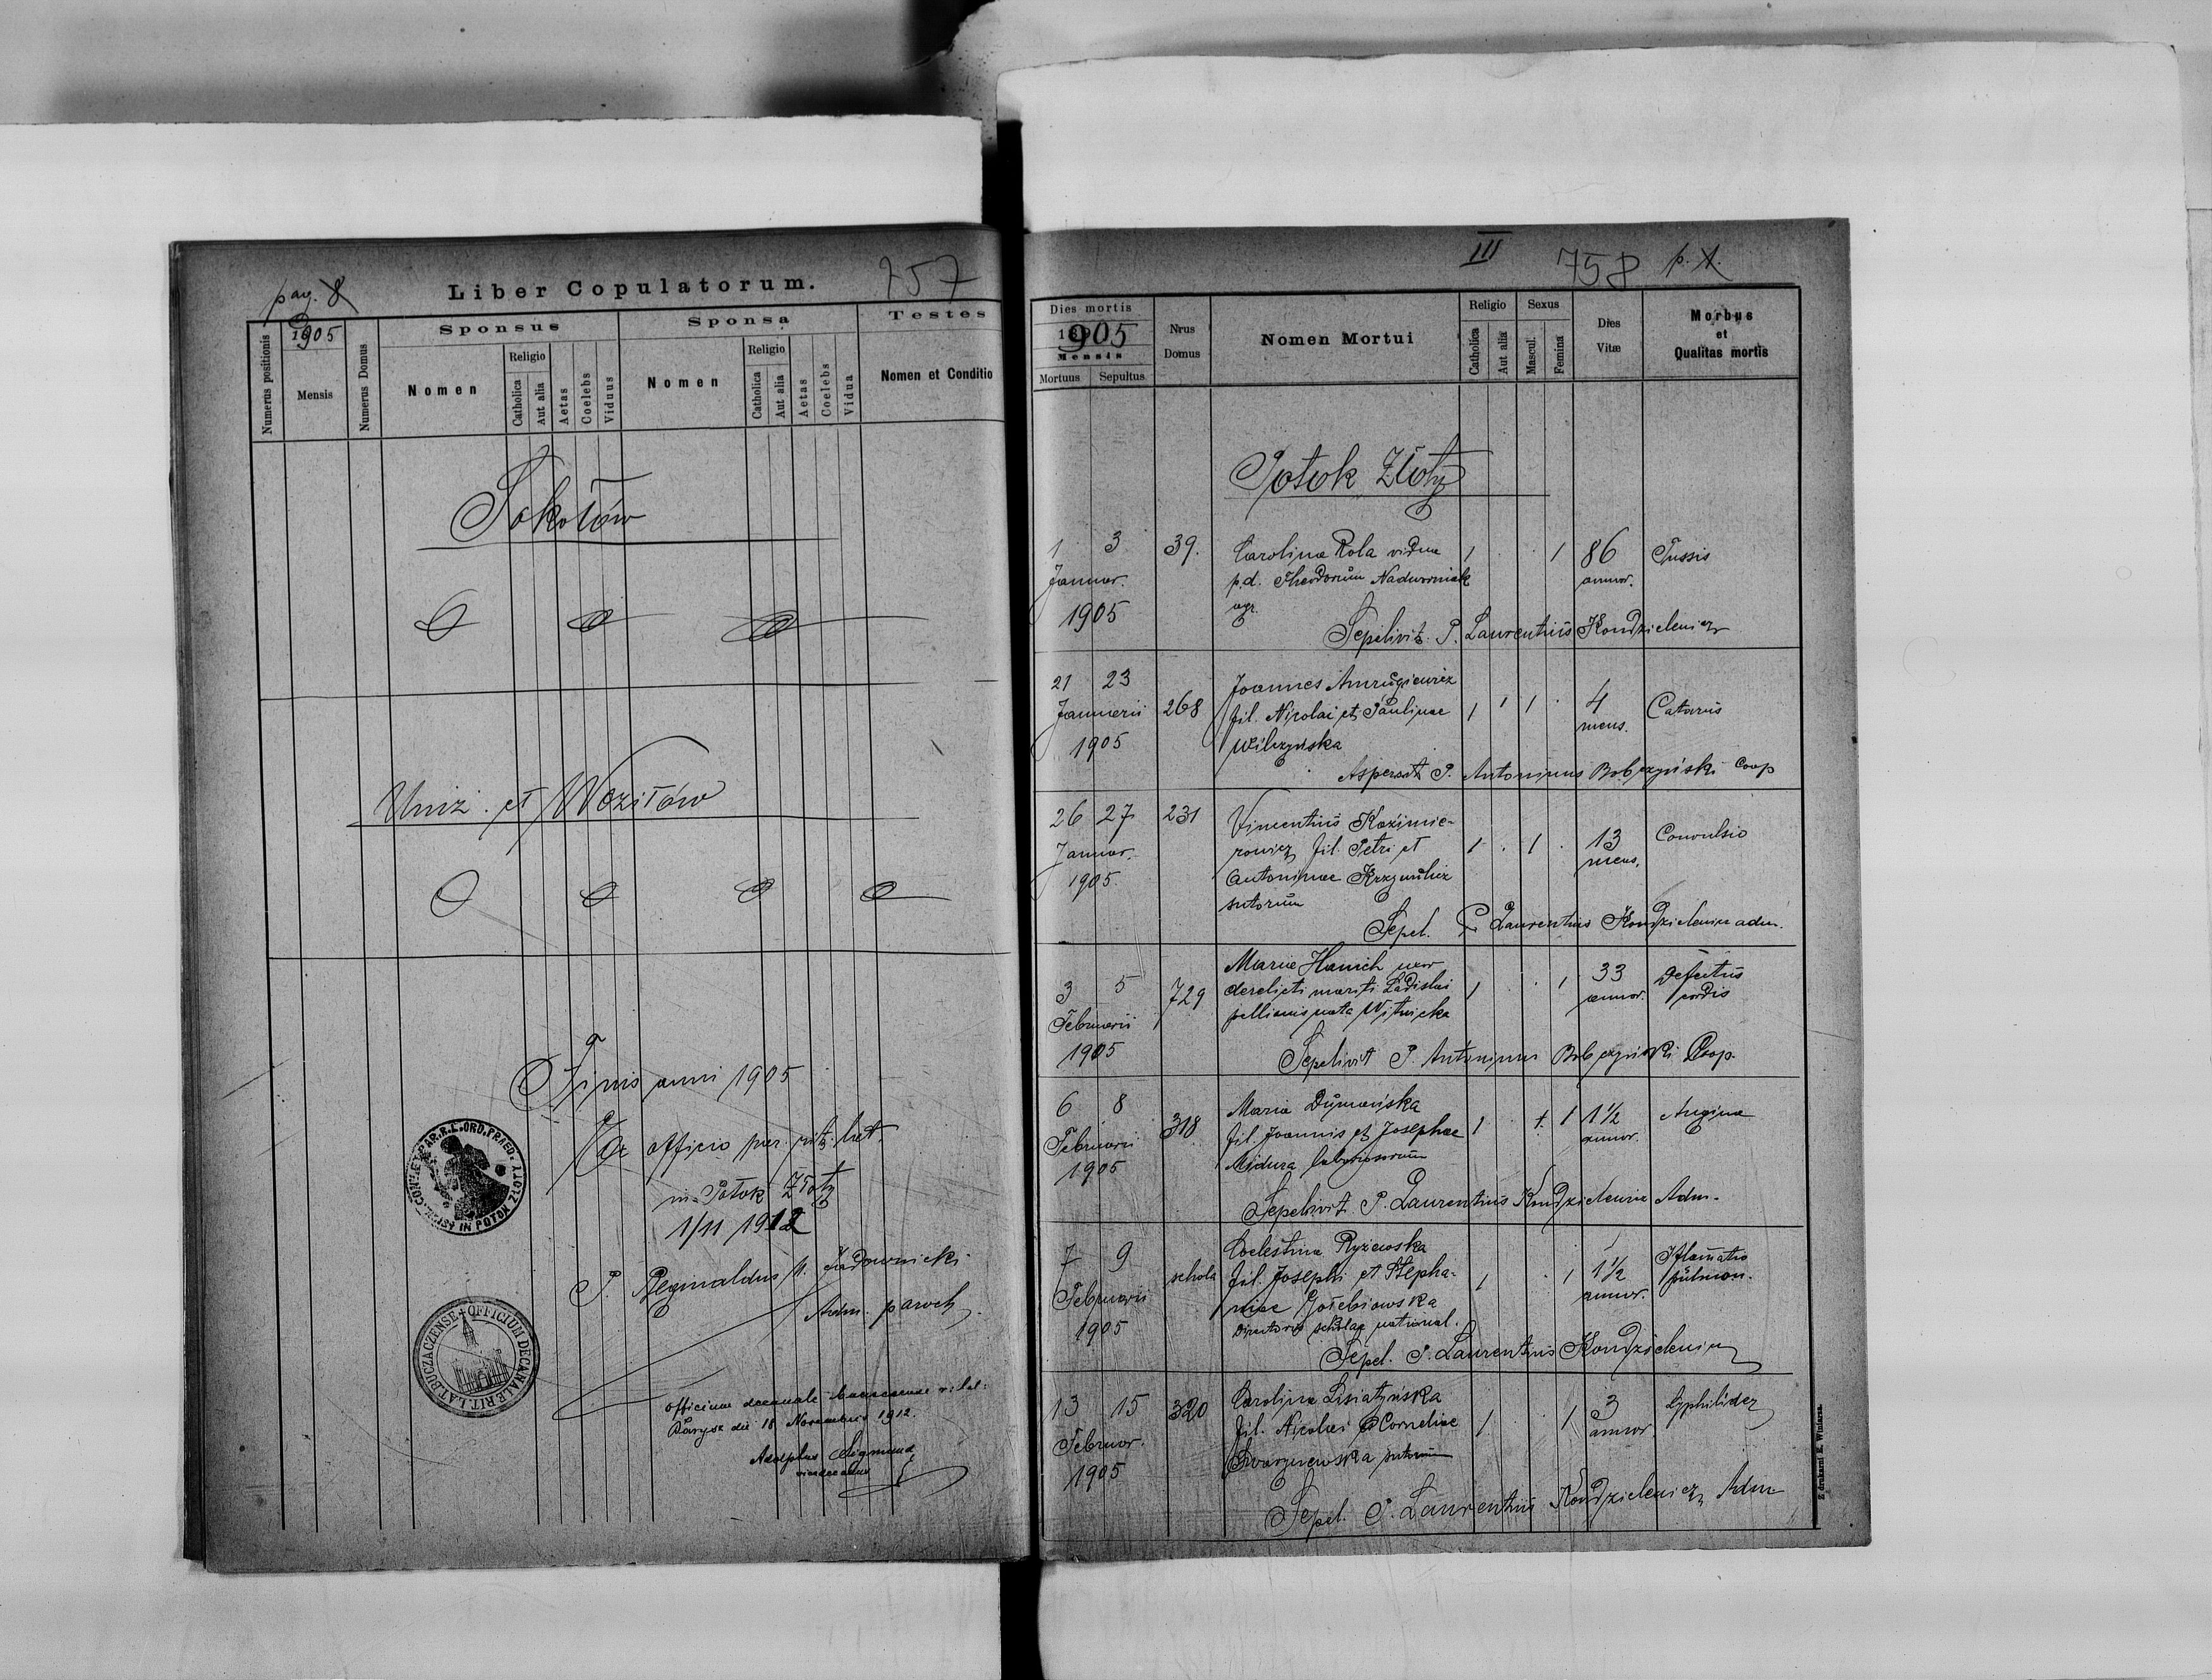 pag. 8
Liber Copulatorum.
257
Numerus positionis
1905
Mensis
Numerus Domus
Sponsus
Nomen
Religio
Catholica
Aut alia
Aetas
Coelebs
Viduus
Sponsa
Nomen
Religio
Catholica
Aut alia
Aetas
Coelebs
Vidua
Testes
Nomen et Conditio
Sokołów
Uniz. et Wozilów
Finis anni 1905
Ex officio par. rit. lat.
in Potok Złoty
1/11 1912
P. Reginaldus
Adm. paroch.
SIGIL. CONV. ET PAR. R. L. ORD. PRAED. IN POTOK ZŁOTY
OFFICIUM DECANALE RIT. LAT. BUCZACZENSE
Officium decanale buczacense r. lat.
Barysz die 18 Novembris 1912.
Adolphus Sigmund
vicedecanus
III
758
p. 1.
Dies mortis
1905
Mensis
Mortuus
Sepultus
Nrus
Domus
Nomen Mortui
Religio
Catholica
Aut alia
Sexus
Mascul.
Femina
Dies
Vitæ
Morbus
et
Qualitas mortis
Potok Złoty
1 3 39. Carolina Rola vidua 1 . . 1 86 Tussis
Januar. p.d. Theodorum Nadworniak annor.
1905 agr.
Sepelivit P. Laurentius Kondzielewicz
21 23 Joannes Amrugiewicz
Januarii 268 fil. Nicolai et Paulinae 1 1 . 4 Catarus
1905 Wilczyńska mens.
Aspersit P. Antoninus Bobczyński Coop
26 27 231 Vincentius Kazimie-
Januar. rowicz fil. Petri et 1 . 1 . 13 Convulsio
1905. Antoninae Krzywulicz mens.
sutorum
Sepel. P. Laurentius Kondzielewicz adm.
Maria Hanich uxor
3 5 729 derelicti mariti Ladislai 1 . 1 33 Defectus
Februarii pellionis nata Witnicka annor. cordis
1905
Sepelivit P. Antoninus Bobczyński Coop.
6 8 Maria Dumańska
Februarii 318 fil. Joannis et Josephae 1 1 1½ Angina
1905 Midura laboriosorum annor.
Sepelivit P. Laurentius Kondzielewicz Adm.
7 9 Coelestina Ryżewska
schola fil. Josephi et Stepha- 1 . 1 1½ Iflamatio
Februarii niae Gołębiowska annor. pulmon.
1905 Directoris scholae national.
Sepel. P. Laurentius Kondzielewicz
13 15 320 Carolina Lisiatyńska
Februar. fil. Nicolai et Corneliae 1. 1 3
1905 sutorum annor.
Sepel. P. Laurentius Kondzielewicz Adm
Z drukarni E. Winiarza.